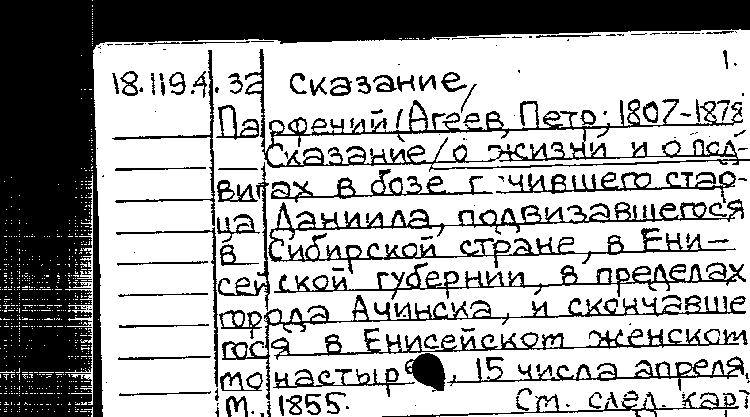 1.
18.119.4.32 Сказание
Парфений (Агеев, Петр; 1807-1878
Сказание/о жизни и о под-
вигах в бозе чившего стар-
ца Даниила, подвизавшегося
в Сибирской стране, в Ени-
сейской губернии, в пределах
города Ачинска, и скончавше
гося в Енисейском женском
монастыр, 15 числа апреля,
М., 1855. См. след. карт